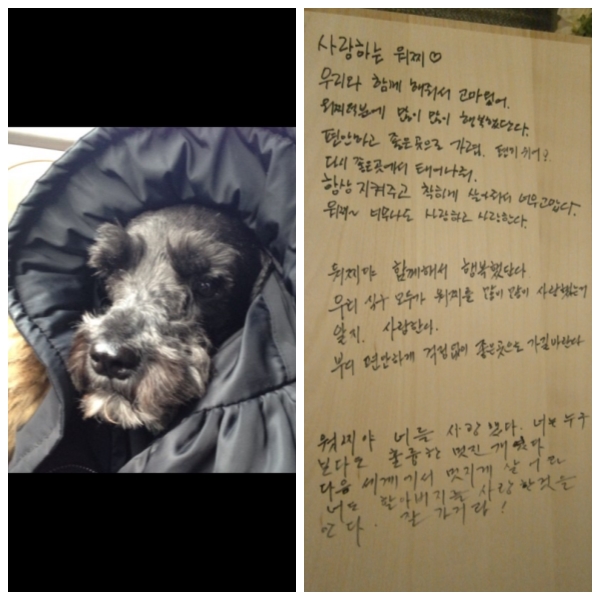 사랑하는 뭐찌♡
우리와 함께 해줘서 고마웠어.
뭐찌 덕분에 많이 많이 행복했단다.
편안하고 좋은곳으로 가렴.
다시 좋은곳에서 태어나줘.
항상 지켜주고 착하게 살아줘서 너무 고맙다.
너무나도 사랑하고 사랑한다.
뭐찌야 함께해서 행복했단다
우리 식구 모두가 뭐찌를 많이 많이 사랑했는거
알지. 사랑한다.
부디 편안하게 걱정없이 좋은곳으로 가길바란다
뭐찌야 너를 사랑했다. 너는 누구
보다도 훌륭한 멋진 개였다
다음 세계에서 멋지게 살어라
너는 할아버지는 사랑한것을
안다. 잘 가거라!